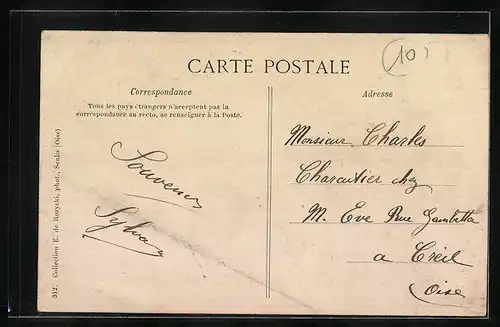 10
CARTE POSTALE
Correspondance
Tous les pays étrangers n'acceptent pas la
correspondance au recto, se renseigner à la Poste.
Souvenir
Sylvain
Adresse
Monsieur Charles
Charcutier chez
M. Eve Rue Gambetta
a Creil
Oise
312. Collection E. de Rozycki, phot., Senlis (Oise)